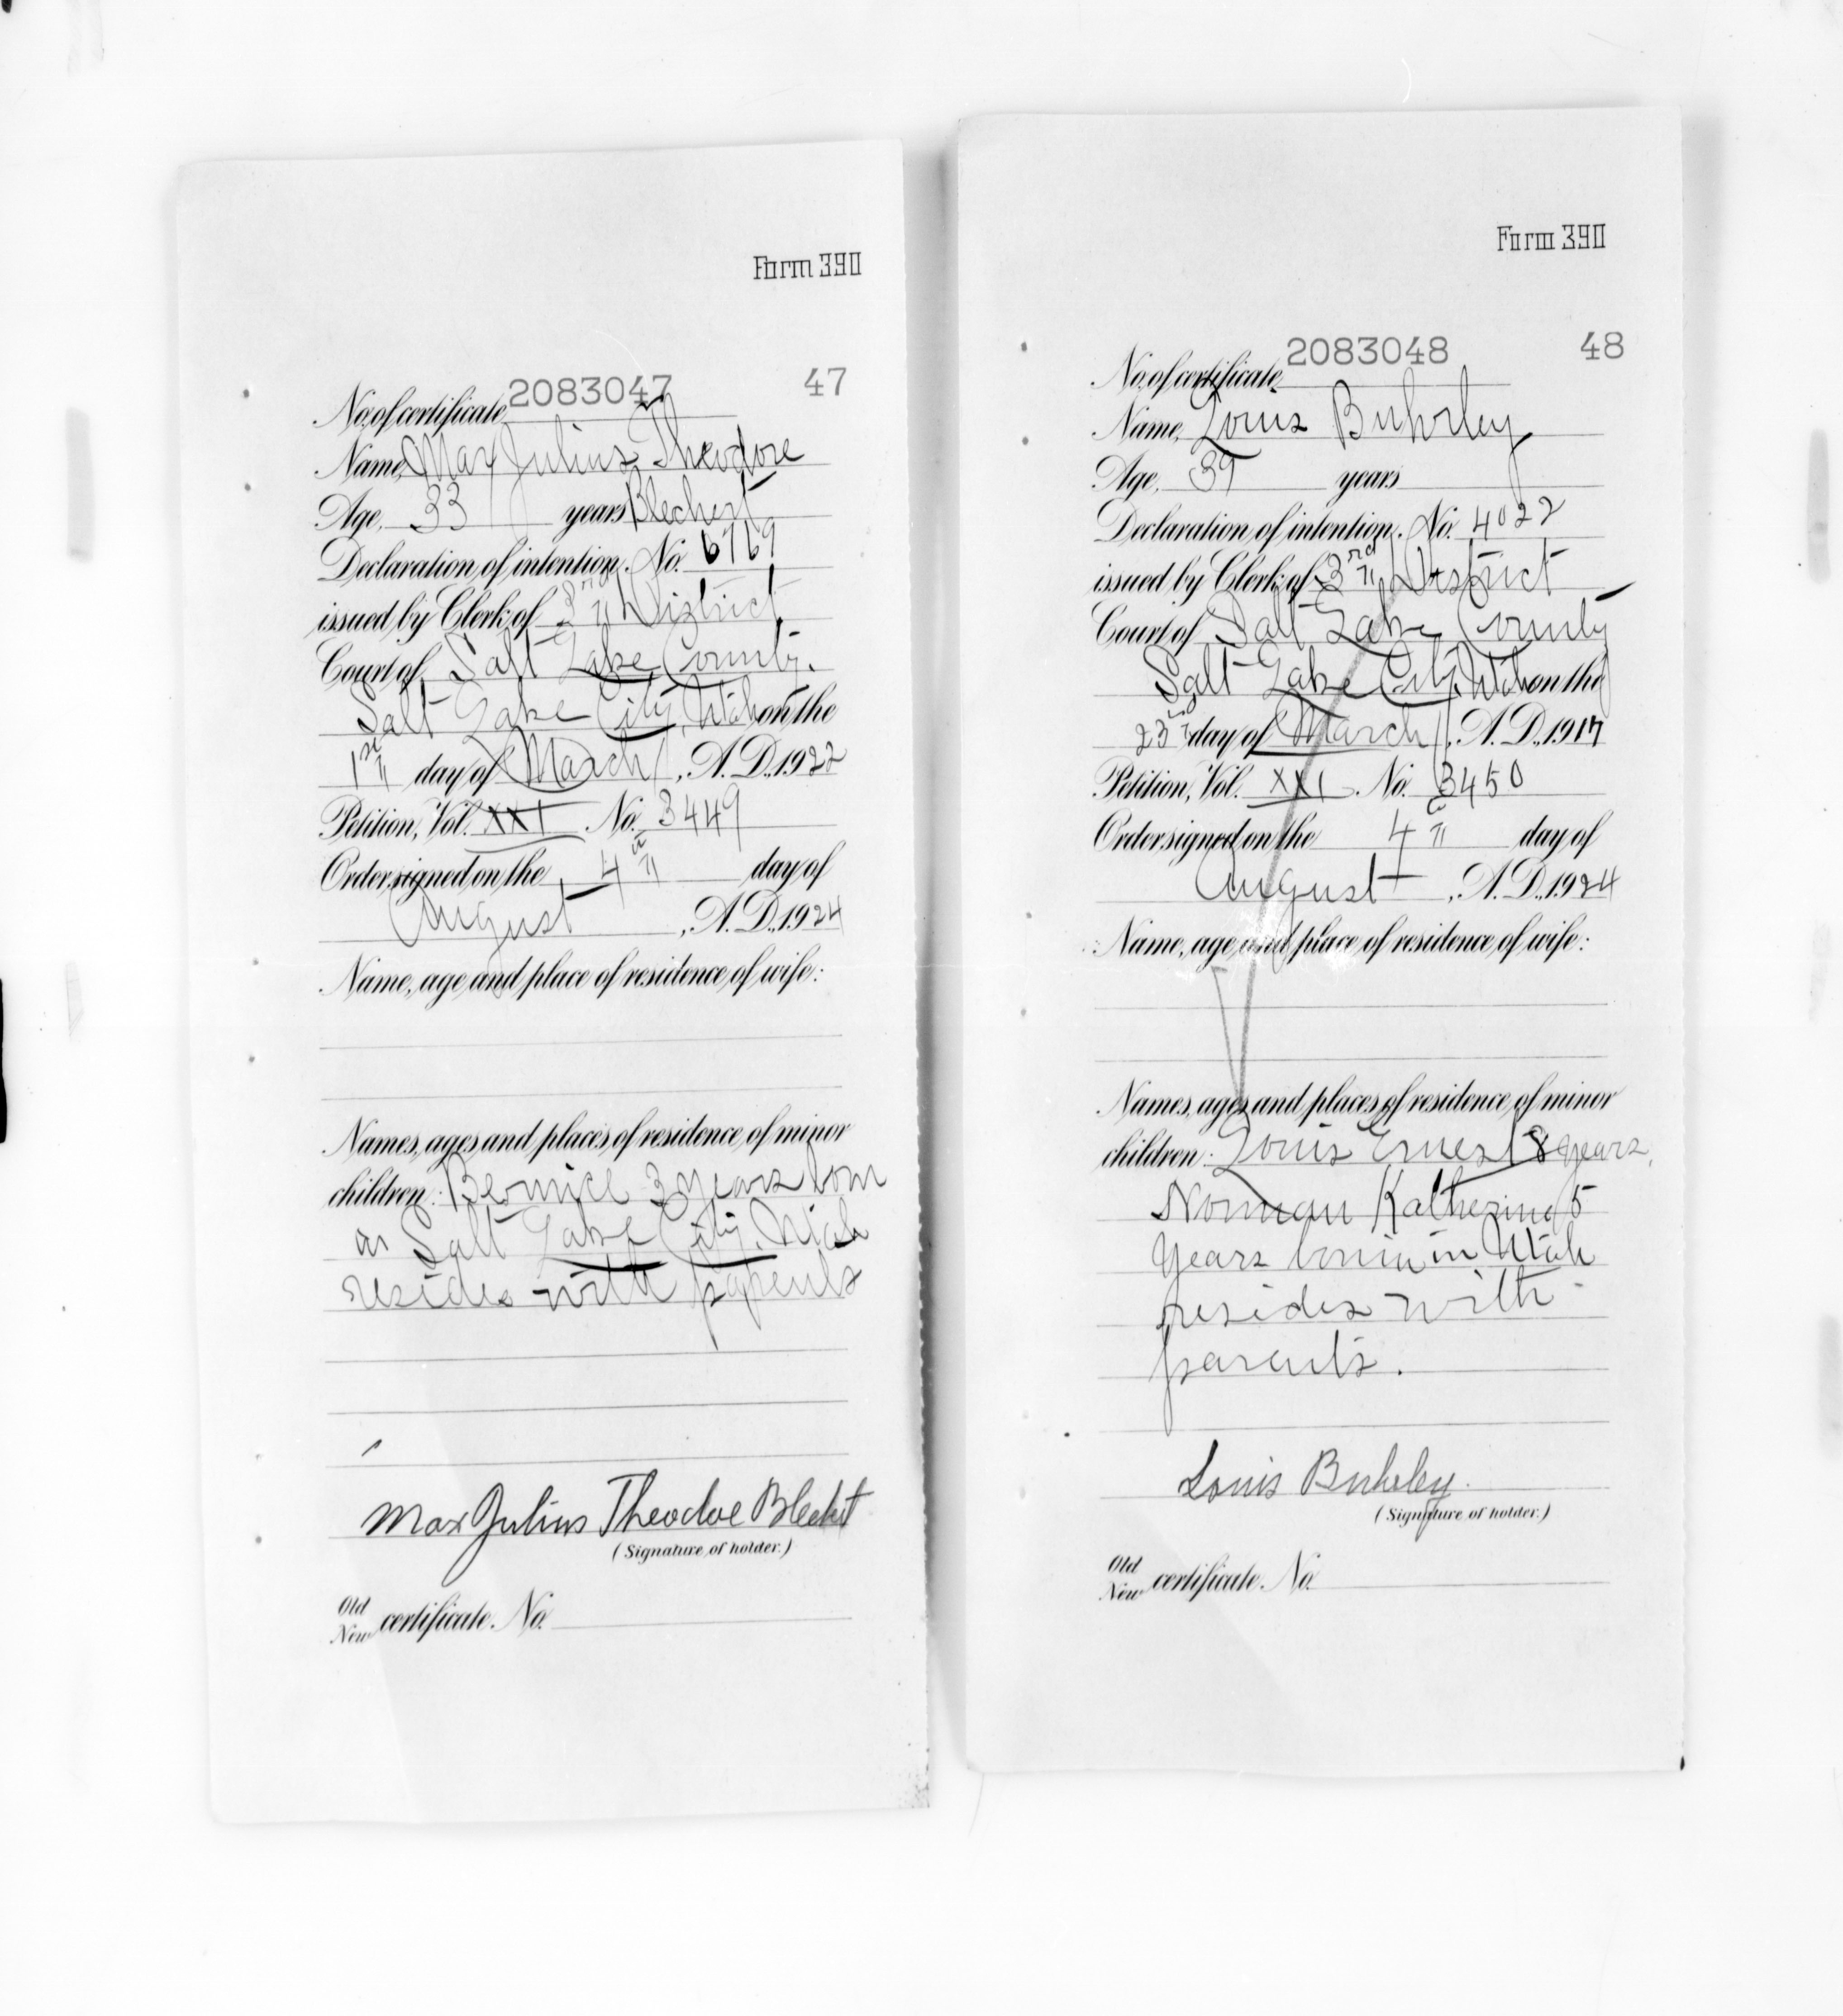 Form 390
2083047 47
No. of certificate,
Name, Max Julius Theodore
Age, 33 years Blechert
Declaration of intention, No. 6769
issued by Clerk of 3rd District
Court of Salt Lake County.
Salt Lake City, Utah on the
1st day of March, A.D., 1922
Petition, Vol. XXI. No. 3449
Order signed on the 4th day of
August, A.D., 1924
Name, age and place of residence of wife:
Names, ages and places of residence of minor
children: Bernice 3 years born
Salt Lake City, Utah
resides with parents
Max Julius Theodore Blechert
(Signature of holder.)
Old
New certificate, No.
Form 390
2083048 48
No. of certificate,
Name, Louis Buhrley
Age, 39 years
Declaration of intention, No. 4022
issued by Clerk of 3rd District
Court of Salt Lake County
Salt Lake City, Utah on the
23rd day of March, A.D., 1917
Petition, Vol. XXI. No. 3450
Order signed on the 4th day of
August, A.D., 1924
Name, age and place of residence of wife:
Names, ages and places of residence of minor
children: Louis Ernest 8 years,
Norman Katherine 5
years born in Utah
resides with
parents.
Louis Buhrley.
(Signature of holder.)
Old
New certificate, No.